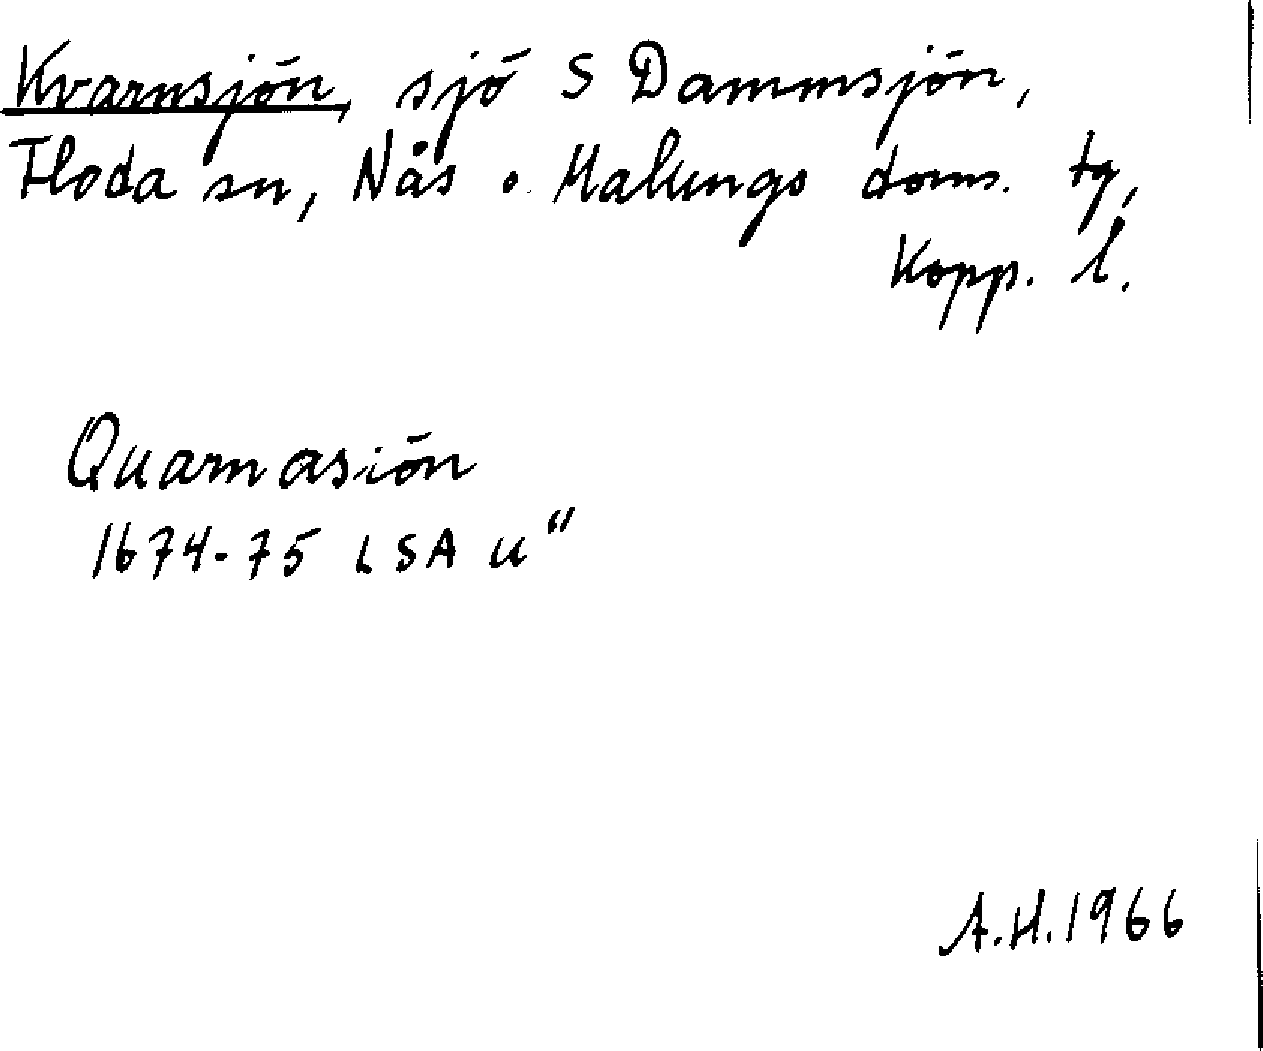 Kvarnsjön, sjö S Dammsjön,
Floda sn, Nås o. Malungs doms. tg,
Kopp. l.
Quarnasiön
1674-75 LSA u"
A.H.1966